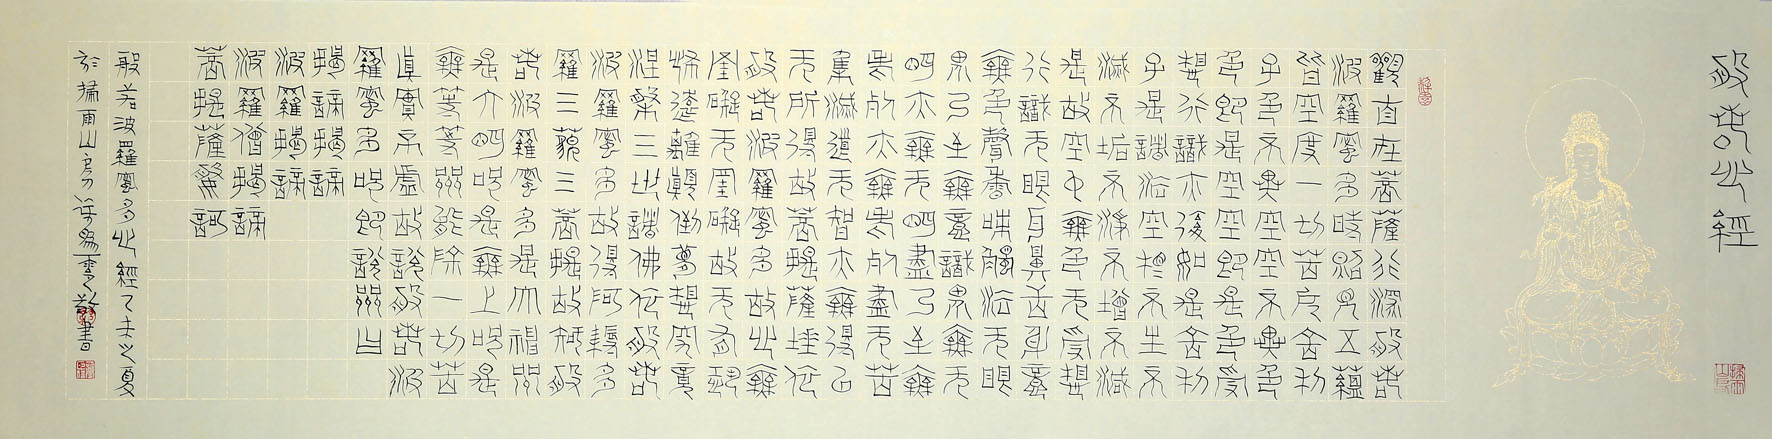 般若心經
觀自在菩薩行深般若
波羅蜜多時照見五蘊
皆空度一切苦厄舍利
子色不異空空不異色
色即是空空即是色受
想行識亦復如是舍利
子是諸法空相不生不
滅不垢不淨不增不減
是故空中無色无受想
行識无眼耳鼻舌身意
無色聲香味觸法无眼
界乃至無意識界無无
明亦無无明盡乃至無
老死亦無老死盡无苦
集滅道无智亦無得以
无所得故菩提薩埵依
般若波羅蜜多故心無
罣礙无罣礙故无有恐
怖遠離顛倒夢想究竟
涅槃三世諸佛依般若
波羅蜜多故得阿耨多
羅三藐三菩提故知般
若波羅蜜多是大神咒
是大明咒是無上咒是
無等等咒能除一切苦
真實不虛故說般若波
羅蜜多咒即說咒曰
揭諦揭諦
波羅揭諦
波羅僧揭諦
菩提薩婆訶
般若波羅蜜多心經乙未之夏
於山房敬書